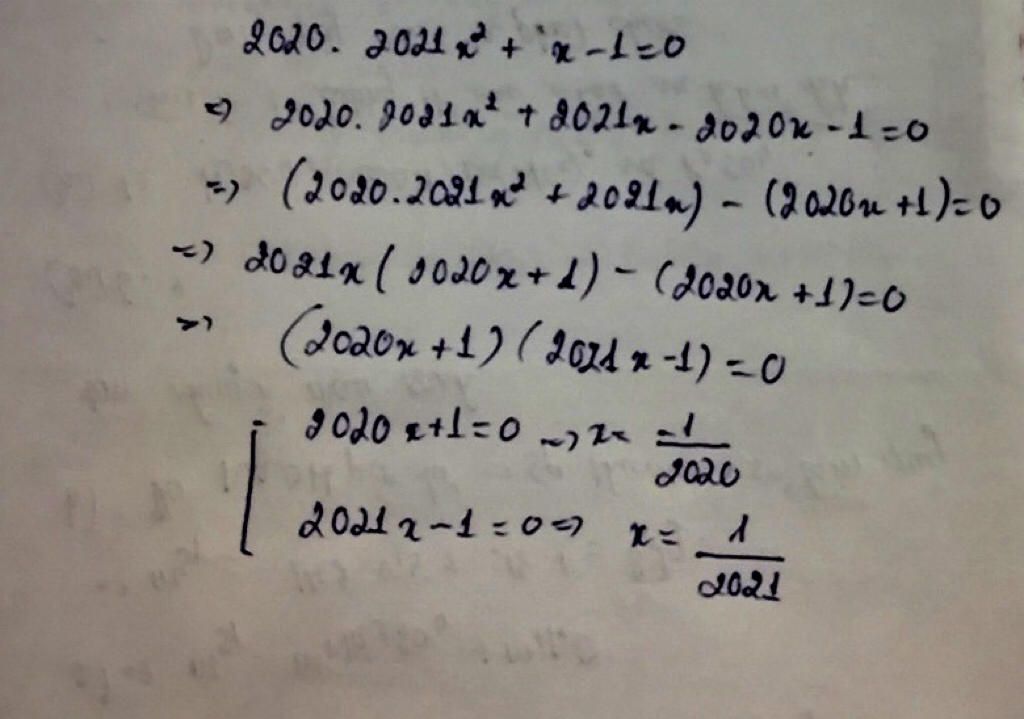 2020. 2021x² + x - 1 = 0
=> 2020. 2021x² + 2021x - 2020x - 1 = 0
=> (2020.2021x² + 2021x) - (2020x + 1) = 0
=> 2021x(2020x + 1) - (2020x + 1) = 0
=> (2020x + 1)(2021x - 1) = 0
[ 2020x + 1 = 0 => x = -1/2020
2021x - 1 = 0 => x = 1/2021